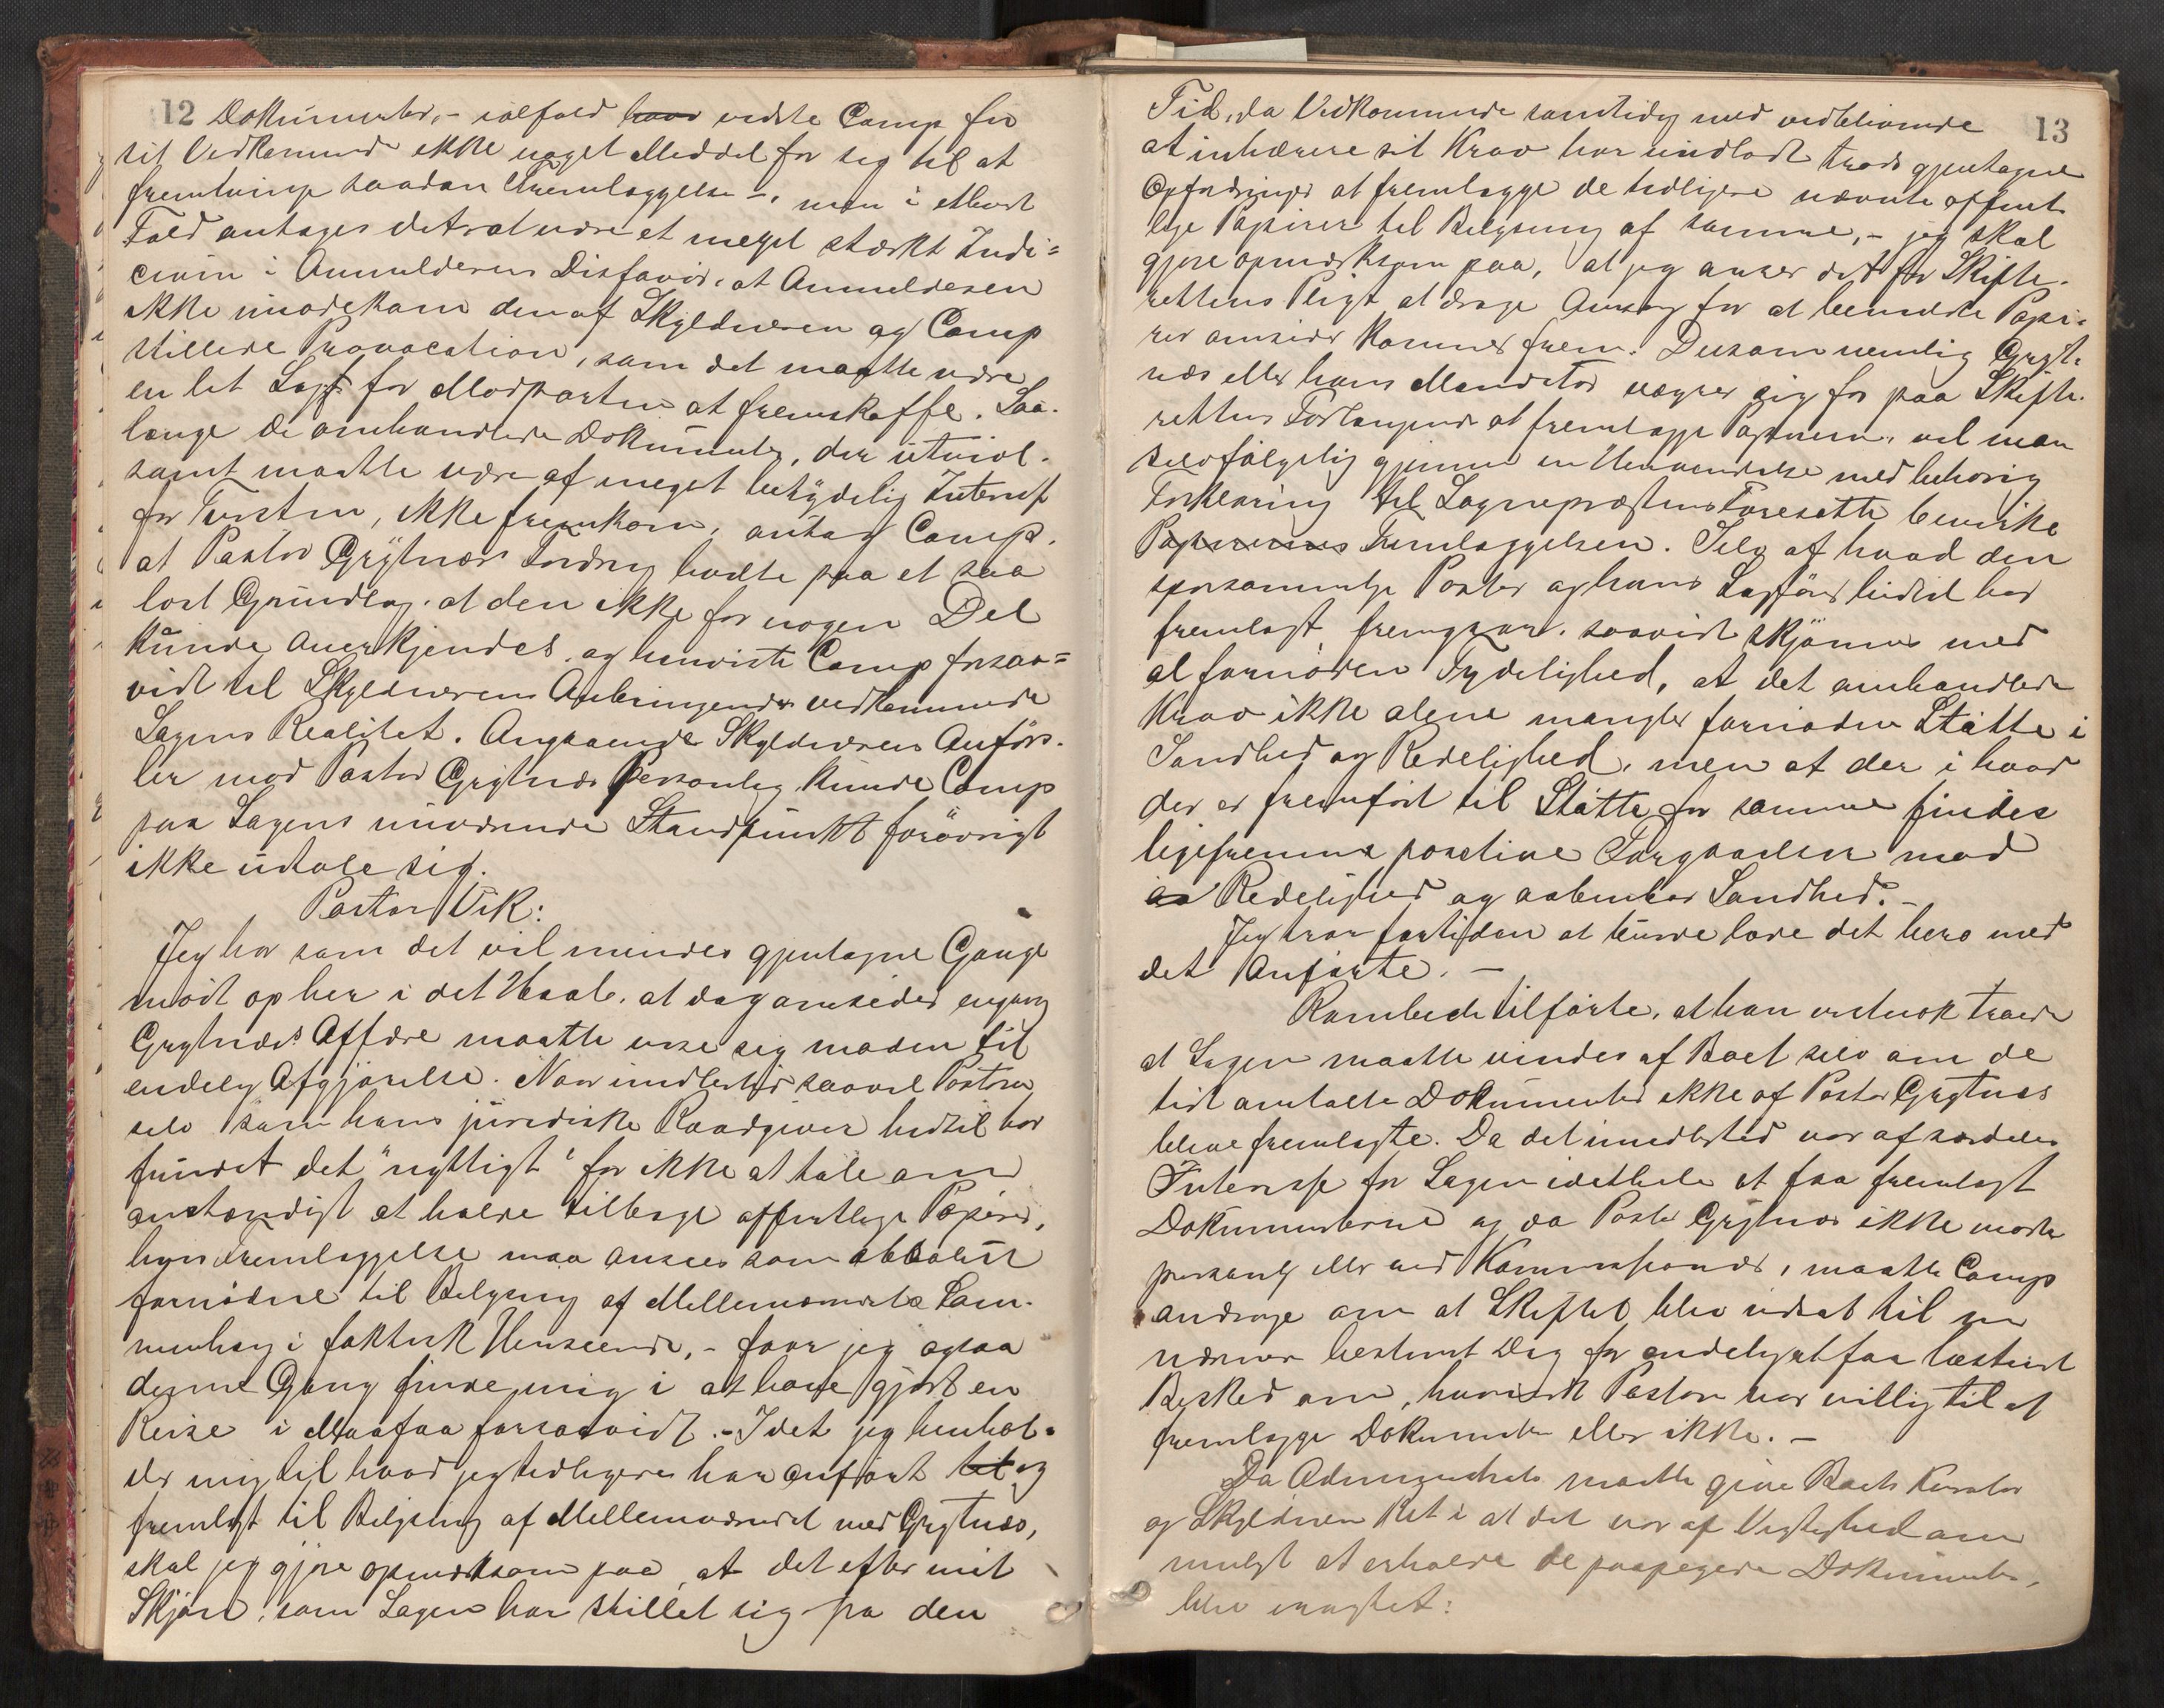 12 Dokumenter, - ialfald havd vidste Camp for
sit Vedkommende ikke noget Middel for sig til at
fremtvinge saadan Fremlæggelse -, men i ethvert
Fald antages det at være et meget stærkt Indi=
cium i Anmelderens Disfavør, at Anmelderen
ikke imødekom den af Skyldneren og Camp
stillede Provocation, som det maatte være
en let Sag for Modparten at fremskaffe. Saa-
længe de omhandlede Dokumenter, der utvivl-
somt maatte være af meget betydelig Interesse
for Tvisten, ikke fremkom, antog Camp,
at Pastor Grytnæs Fordring hvilte paa et saa
løst Grundlag, at den ikke for nogen Del
kunde anerkjendes, og henviste Camp forsaa=
vidt til Skyldnerens Anbringender vedkommende
Sagens Realitet. Angaaende Skyldnerens Anførs-
ler mod Pastor Grytnæs personlig kunde Camp
paa Sagens nuværende Standpunkt forøvrigt
ikke udtale sig.
Pastor Vik:
Jeg har som det vil mindes gjentagne Gange
mødt op her i det Haab, at dog omsider engang
Grytnæs' Affære maatte vise sig moden til
endelig Afgjørelse. Naar imidlertid saavel Pastoren
selv som hans juridiske Raadgiver hidtil har
fundet det "nyttigt" for ikke at tale om
anstændigt at holde tilbage offentlige Papirer,
hvis Fremlæggelse maa ansees som absolut
fornødne til Belysning af Mellemværendets Sam-
menhæng i faktisk Henseende, - faar jeg ogsaa
denne Gang finde mig i at have gjort en
Reise i Maafaa forsaavidt. - Idet jeg henhol-
der mig til hvad jeg tidligere har anført til og
fremlagt til Belysning af Mellemværendet med Grytnæs,
skal jeg gjøre opmærksom paa, at det efter mit
Skjøn, som Sagen har stillet sig fra den
13
Tid, da Vedkommende samtidig med vedblivende
at inhærere sit Krav har undladt trods gjentagne
Opfordringer at fremlægge de tidligere nævnte offent-
lige Papirer til Belysning af samme, - jeg skal
gjøre opmærksom paa, at jeg anser det for Skifte-
rettens Pligt at drage Omsorg for at bemeldte Papi-
rer omsider kommer frem. Dersom nemlig Gryt-
næs eller hans Mandatar vægrer sig for paa Skifte-
rettens Forlangende at fremlægge Papirerne, vil man
selvfølgelig gjennem en Henvendelse med behørig
Forklaring til Sognepræstens Foresatte bevirke
Papirernes Fremlæggelsen. Selv af hvad den
sparsommelige Pastor og hans Sagfører hidtil har
fremlagt fremgaar, saavidt skjønnes med
al fornøden Tydelighed, at det omhandlede
Krav ikke alene mangler fornøden Støtte i
Sandhed og Redelighed, men at der i hvad
der er fremført til Støtte for samme findes
ligefremme positive Forgaaelser mod
Redelighed og aabenbar Sandhed. -
Jeg tror fortiden at kunne lade det bero med
det Anførte. -
Rambech tilførte, at han vistnok troede
at Sagen maatte vindes af Boet selv om de
tidt omtalte Dokumenter ikke af Pastor Grytnæs
bleve fremlagte. Da det imidlertid var af særdeles
Interesse for Sagen idethele at faa fremlagt
Dokumenterne og da Pastor Grytnæs ikke mødte
personlig eller ved Kommissionær, maatte Camp
andrage om at Skiftet blev udsat til en
nærmere bestemt Dag for endelig at faa bestemt
Besked om, hvorvidt Pastoren var villig til at
fremlægge Dokumenterne eller ikke. -
Da Administrator maatte give Boets Kurator
og Skyldneren Ret i at det var af Vigtighed om
muligt at erholde de paapegede Dokumenter,
blev eragtet: